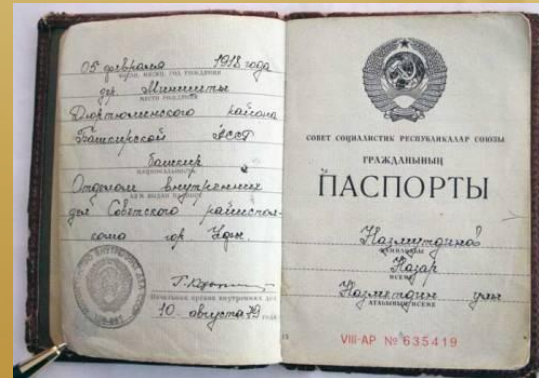 05 февраля 1918 года
число, месяц, год рождения
дер. Миништы
место рождения
Дюртюлинского района
Башкирской АССР
башкир
национальность
Отделом внутренних
кем выдан паспорт
дел Советского райиспол-
кома гор Уфы.
Начальник органа внутренних дел
10 августа 79 года
СОВЕТ СОЦИАЛИСТИК РЕСПУБЛИКАЛАР СОЮЗЫ
ГРАЖДАНЫНЫҢ
ПАСПОРТЫ
Назмутдинов
фамилияһы
Назар
исеме
улы
атаһының исеме
VIII-АР № 635419